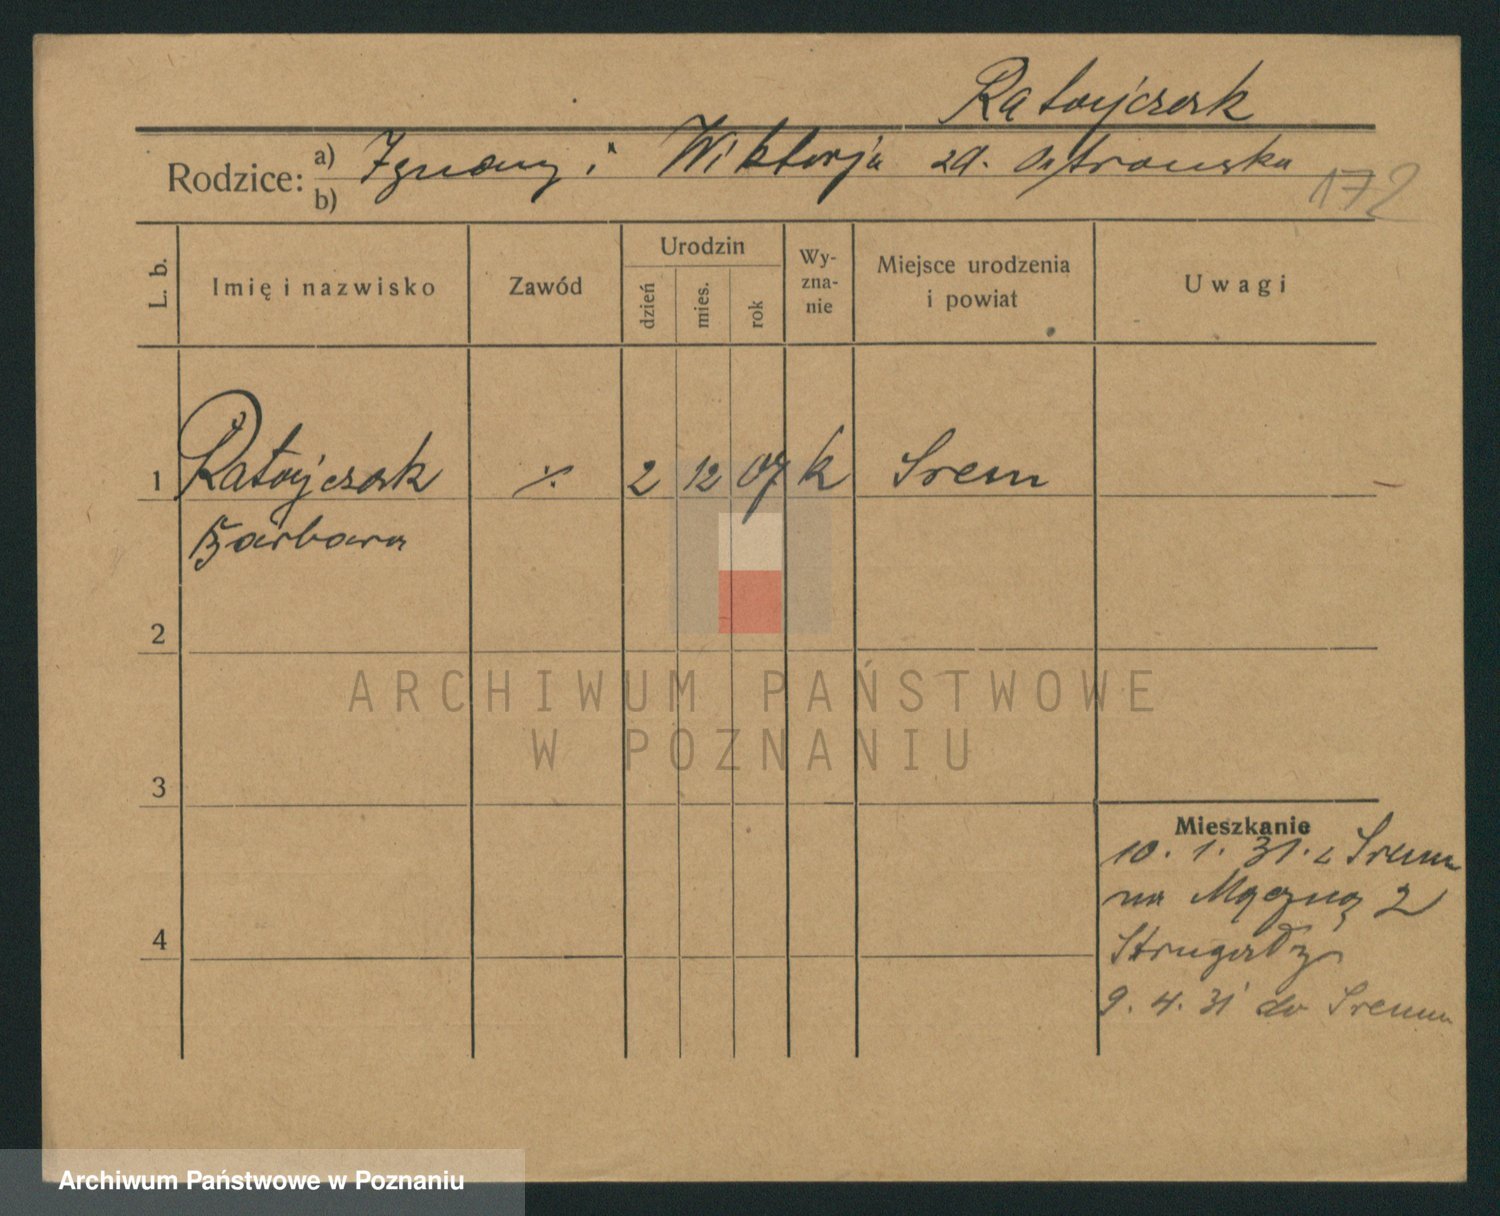 Ratajczak
Rodzice: a) Ignacy i Wiktorja zd. Ostrowska
b)
172
L. b.
Imię i nazwisko
Zawód
Urodzin
dzień
mies.
rok
Wy-
zna-
nie
Miejsce urodzenia
i powiat
Uwagi
1 Ratajczak ·/. 2 12 07 k Śrem
Barbara
2
ARCHIWUM PAŃSTWOWE
W POZNANIU
3
Mieszkanie
10. 1. 31. z Śremu
na Mączną 2
4
9. 4. 31 do Śremu
Archiwum Państwowe w Poznaniu